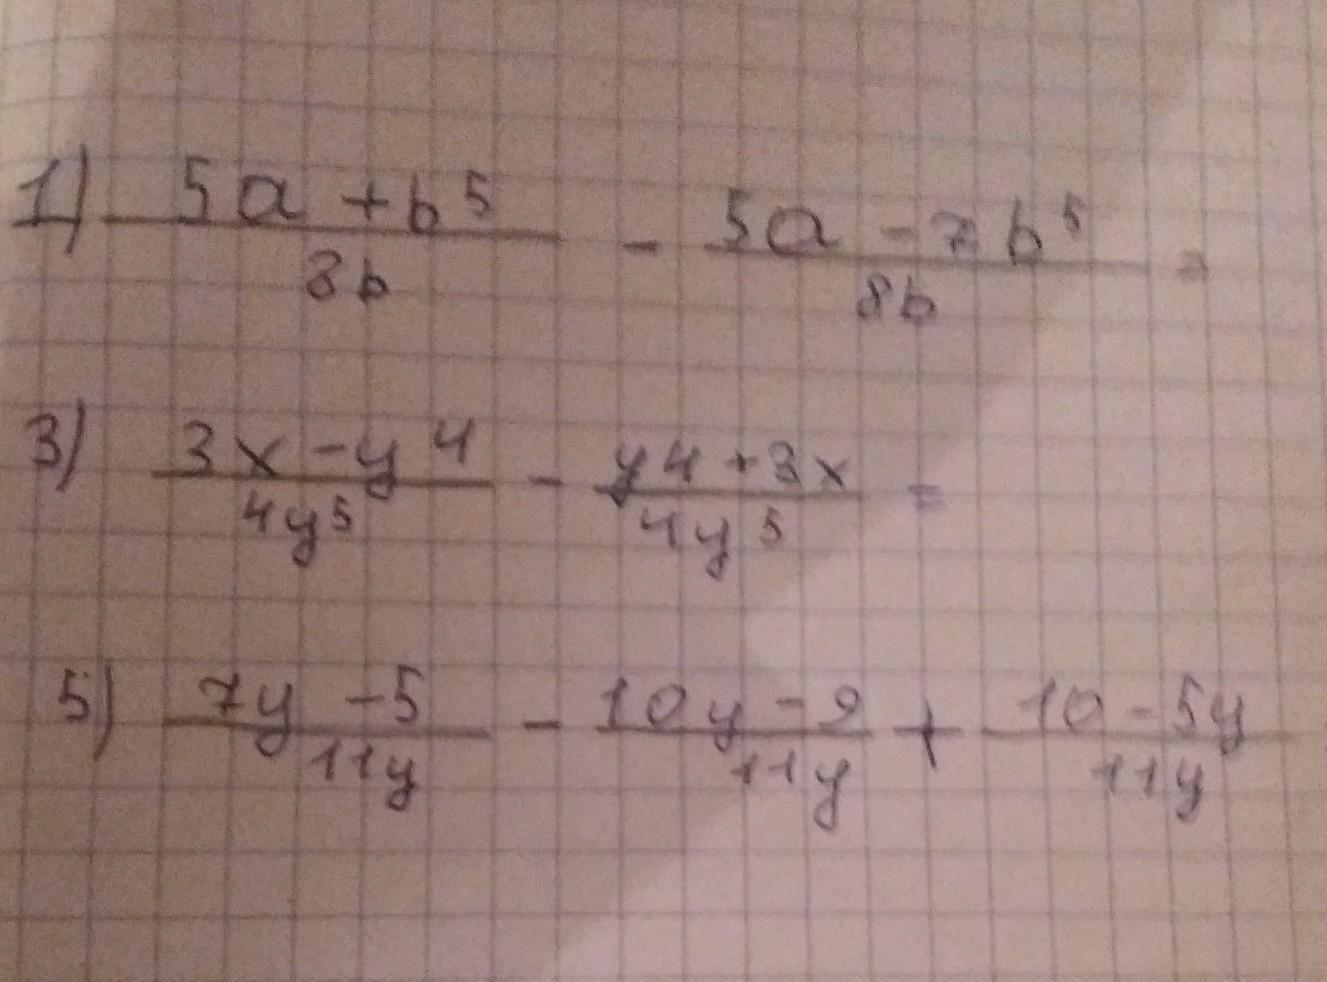 1) (5a + b⁵)/(8b) - (5a - 7b⁵)/(8b) =
3) (3x - y⁴)/(4y⁵) - (y4 + 3x)/(4y⁵) =
5) (7y - 5)/(11y) - (10y - 9)/(11y) + (10 - 5y)/(11y)